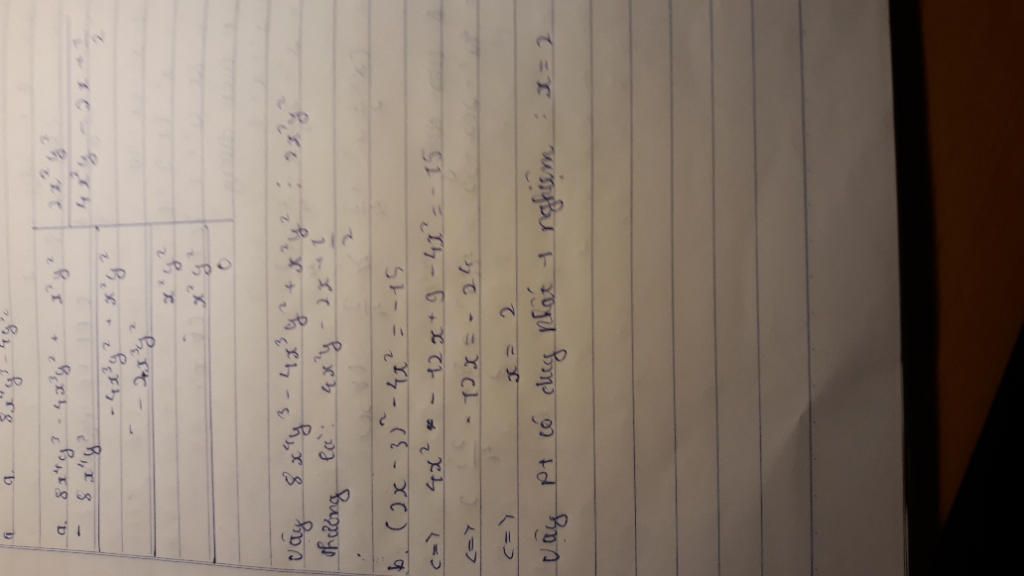 a 8x⁴y³ - 4y²
a. 8x⁴y³ - 4x³y² + x²y² | 2x²y²
- 8x⁴y³ | 4x²y - 2x + 1/2
-4x³y² + x²y²
- - 2x³y²
x²y²
x²y²
0
Vậy 8x⁴y³ - 4x³y² + x²y² : 2x²y²
thương là: 4x²y - 2x + 1/2
b. (2x - 3)² - 4x² = -15
<=> 4x² - 12x + 9 - 4x² = -15
<=> - 12x = - 24
<=> x = 2
Vậy pt có duy nhất 1 nghiệm : x = 2